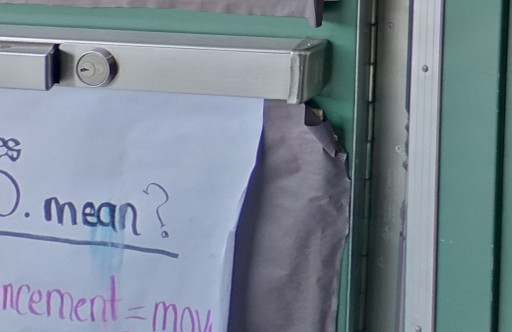 es
D. mean?
ncement = mov